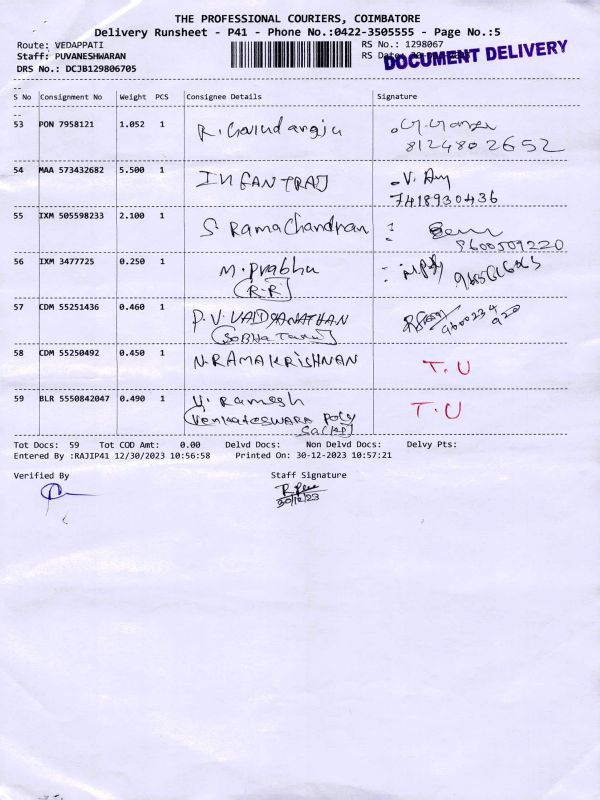 THE PROFESSIONAL COURIERS, COIMBATORE
Delivery Runsheet - P41 - Phone No.:0422-3505555 - Page No.:5
Route: VEDAPPATI
RS No.: 1298067
Staff: PUVANESHWARAN
RS Date:
DOCUMENT DELIVERY
DRS No.: DCJB129806705
S No Consignment No Weight PCS Consignee Details Signature
53 PON 7958121 1.052 1 R. Govindaraju
8124802652
54 MAA 573432682 5.500 1 INFANTRAJ
7418930436
55 IXM 505598233 2.100 1 S RamaChandran
8600509220
56 IXM 3477725 0.250 1 M. Prabhu
(R.R)
57 CDM 55251436 0.460 1 P.V. VAIDYANATHAN
9600234
920
58 CDM 55250492 0.450 1 N.RAMAKRISHNAN T.U
59 BLR 5550842047 0.490 1 Y. Ramesh T.U
Venkateswara Poly
Tot Docs: 59 Tot COD Amt: 0.00 Delvd Docs: Non Delvd Docs: Delvy Pts:
Entered By :RAJIP41 12/30/2023 10:56:58 Printed On: 30-12-2023 10:57:21
Verified By Staff Signature
30/12/23